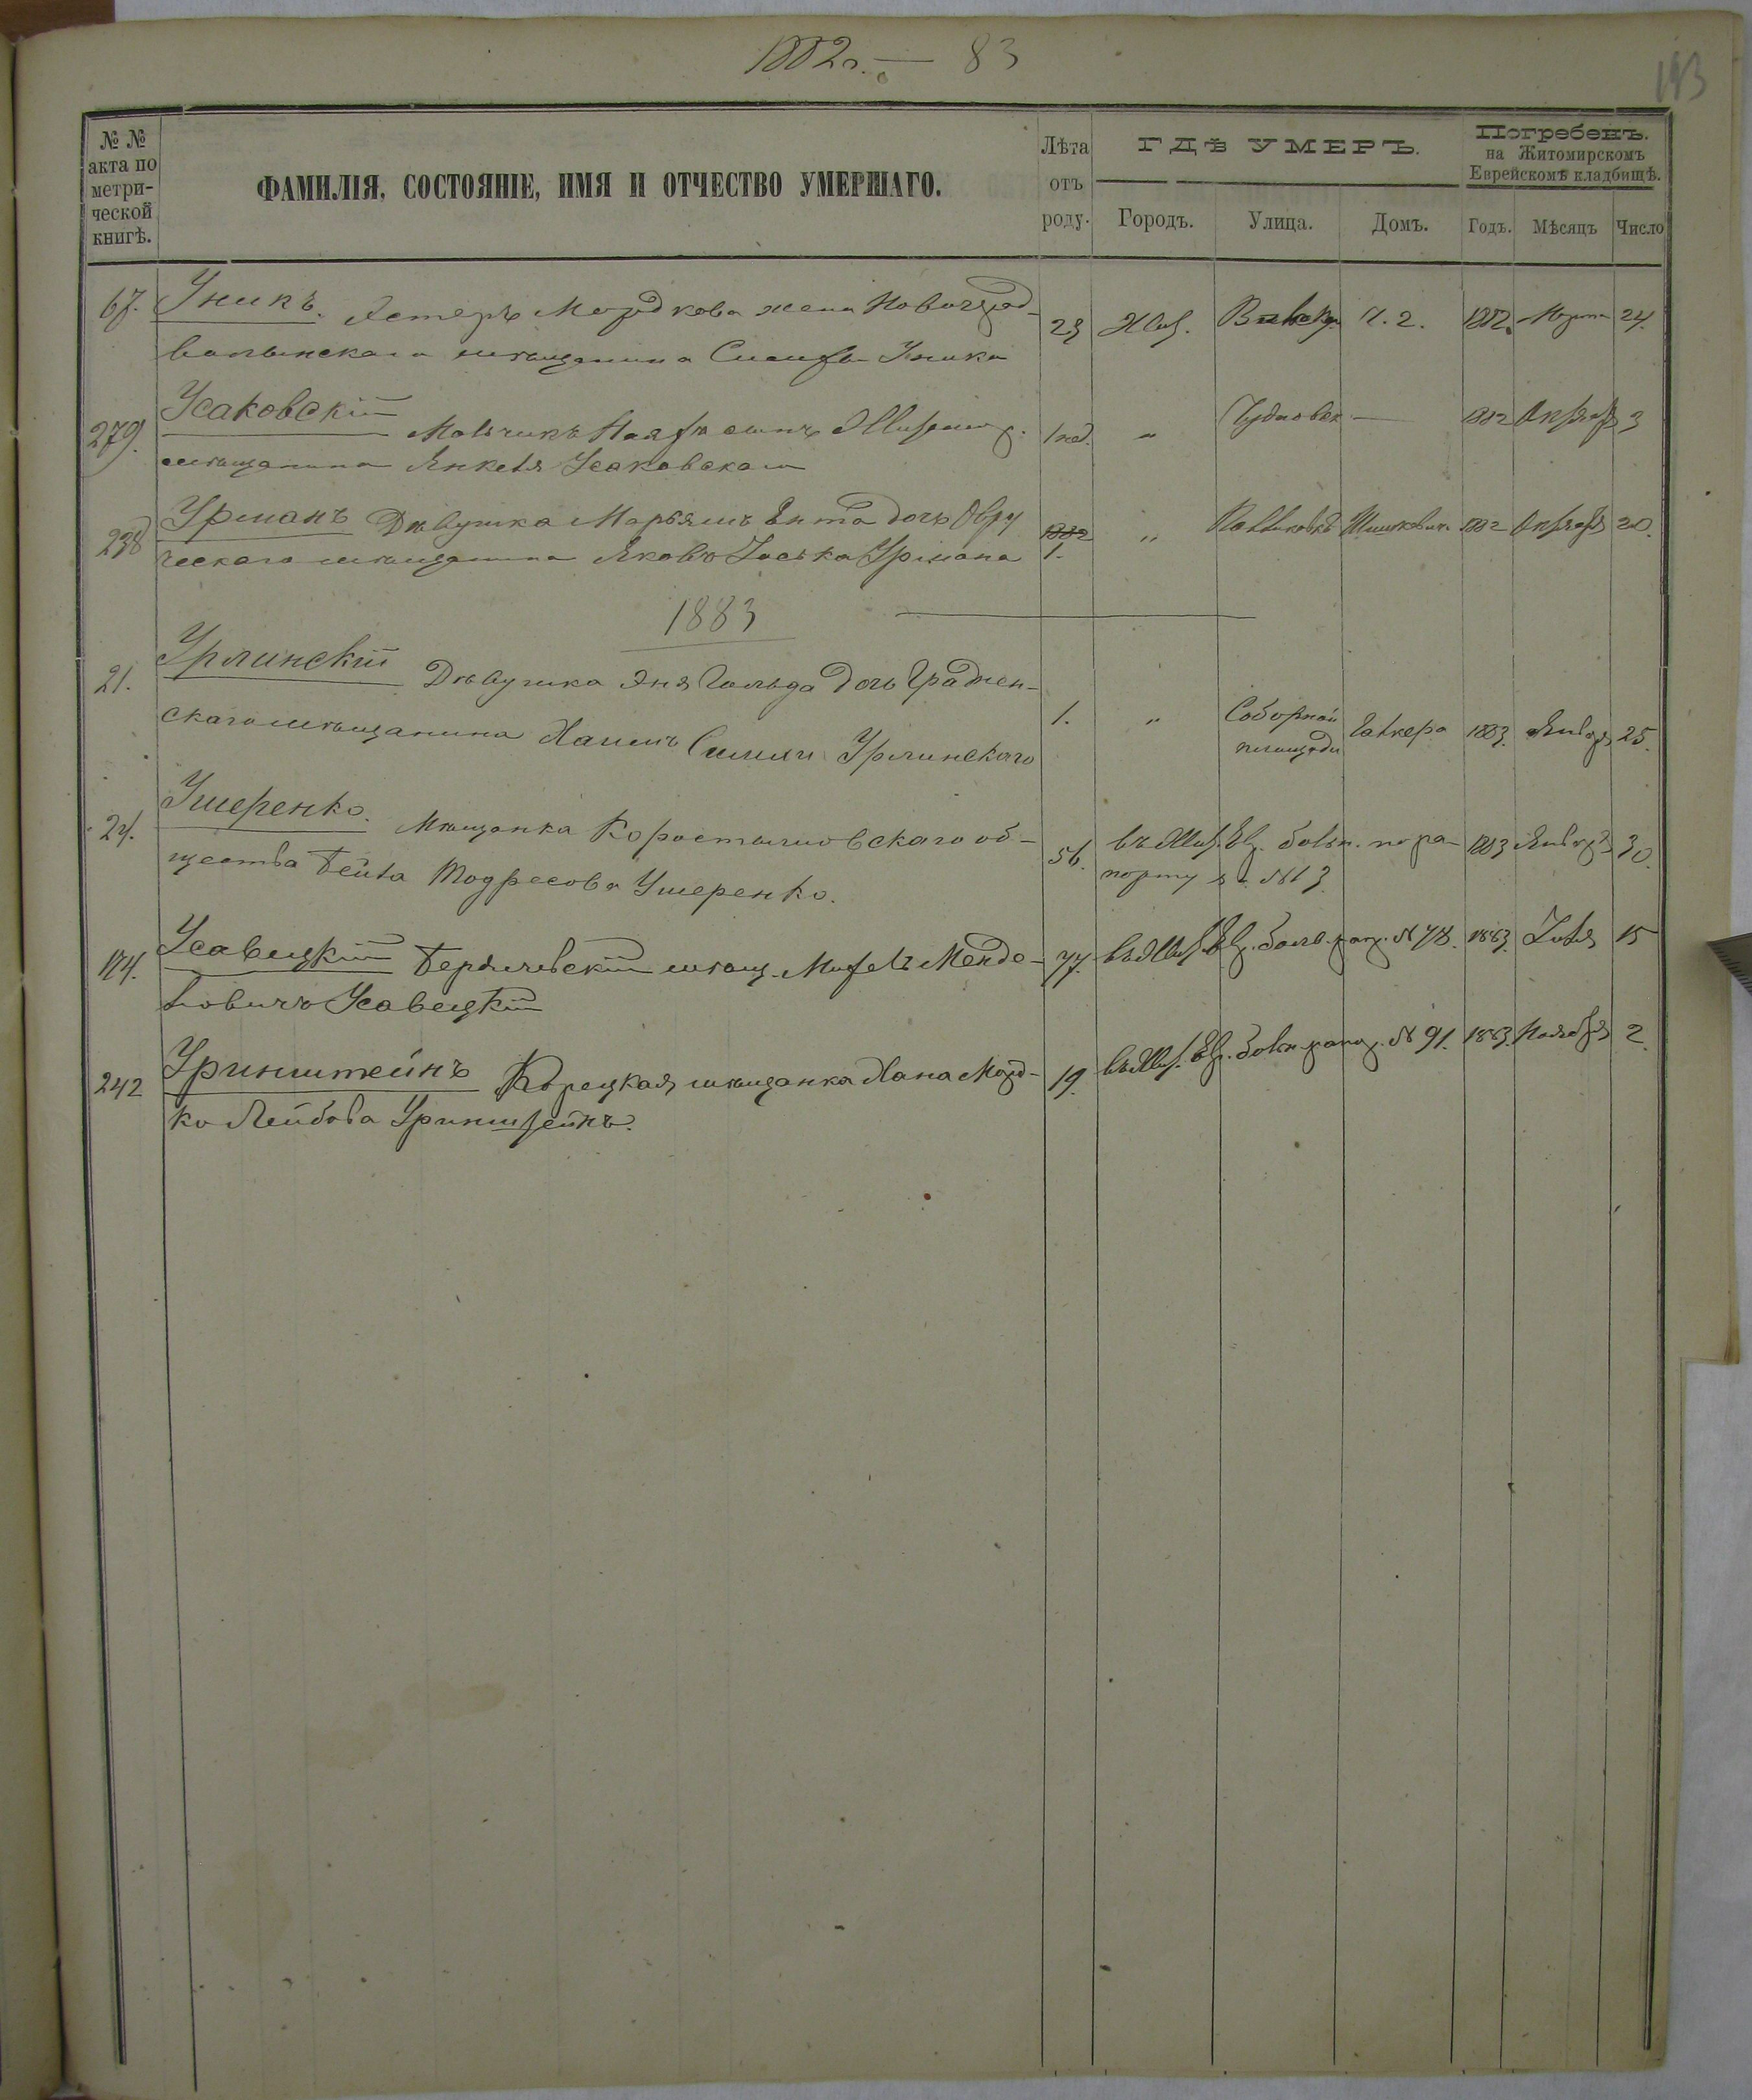 1882 г. — 83
193
№ № акта по метрической книгѣ.
ФАМИЛІЯ, СОСТОЯНІЕ, ИМЯ И ОТЧЕСТВО УМЕРШАГО.
Лѣта отъ роду.
ГДѢ УМЕРЪ.
Городъ. Улица. Домъ.
Погребенъ. на Житомирскомъ Еврейскомъ кладбищѣ.
Годъ. Мѣсяцъ Число
67. Уникъ. Эстеръ Мордкова жена Новоград-
волынскаго мѣщанина Уника 23 Жит. 1882. Марта 24.
279. Усаковскій Мальчикъ сынъ Житомир.
мѣщанина Янкеля Усаковскаго 1 нед. " Чудновск — 1882 Октября 3
298 Урманъ Дѣвушка Марьямъ Ента дочь Овру
ческаго мѣщанина Яковъ Іоська Урмана 1. " 1882 Октября 20.
1883
21. Урлинскій Дѣвушка Эня Гольда дочь Гроднен-
скаго мѣщанина Хаимъ Симхи Урлинскаго 1. " Соборной площади 1883. Января 25.
24. Ушеренко. Мѣщанка Коростышовскаго об-
щества Бейла Тодресова Ушеренко. 56. въ Жит. Евр. больн. по ра-
порту за №13. 1883 Января 30.
174. Усавецкій Бердичевскій мѣщ. Мендe-
ловичъ Усавецкій 77. въ Жит. Евр. боль. рап. №78. 1883. Іюля 15
242 Уринштейнъ Корецкая мѣщанка Хана Морд-
ко Лейбова Уринштейнъ. 19. въ Жит. Евр. больн. рапор. № 91. 1883. Ноября 2.